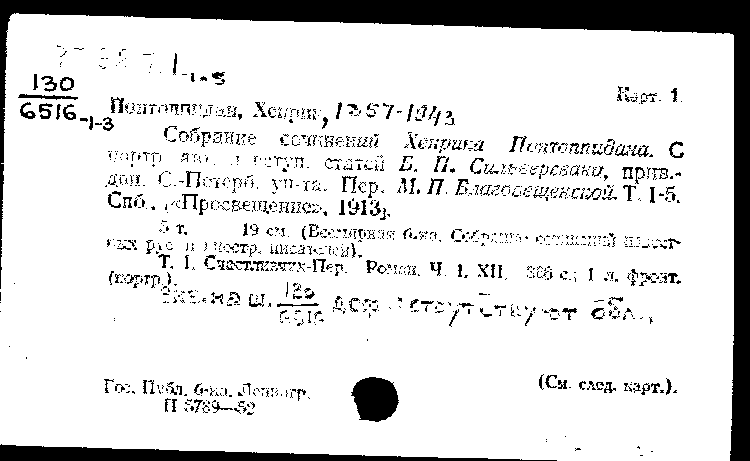 130
6516-1-3
Карт. 1.
Понтоппидан, Хенрик, 1857-1943
Собрание сочинений Хенрика Понтоппидана. С
портр. авт. и вступ. статей Б. П. Сильверсвана, прив.-
доц. С.-Петерб. ун-та. Пер. М. П. Благовещенской. Т. 1-5.
Спб., «Просвещение», 1913.
5 т. 19 см. (Всемирная б-ка. Собрание сочинений извест-
ных рус. и иностр. писателей).
Т. 1. Счастливчик-Пер. Роман. Ч. 1. XII, 1 л. фронт.
(портр.).
ш. 130
6516 обл.,
(См. след. карт.).
Гос. Публ. б-ка. Ленингр.
П 5789—52